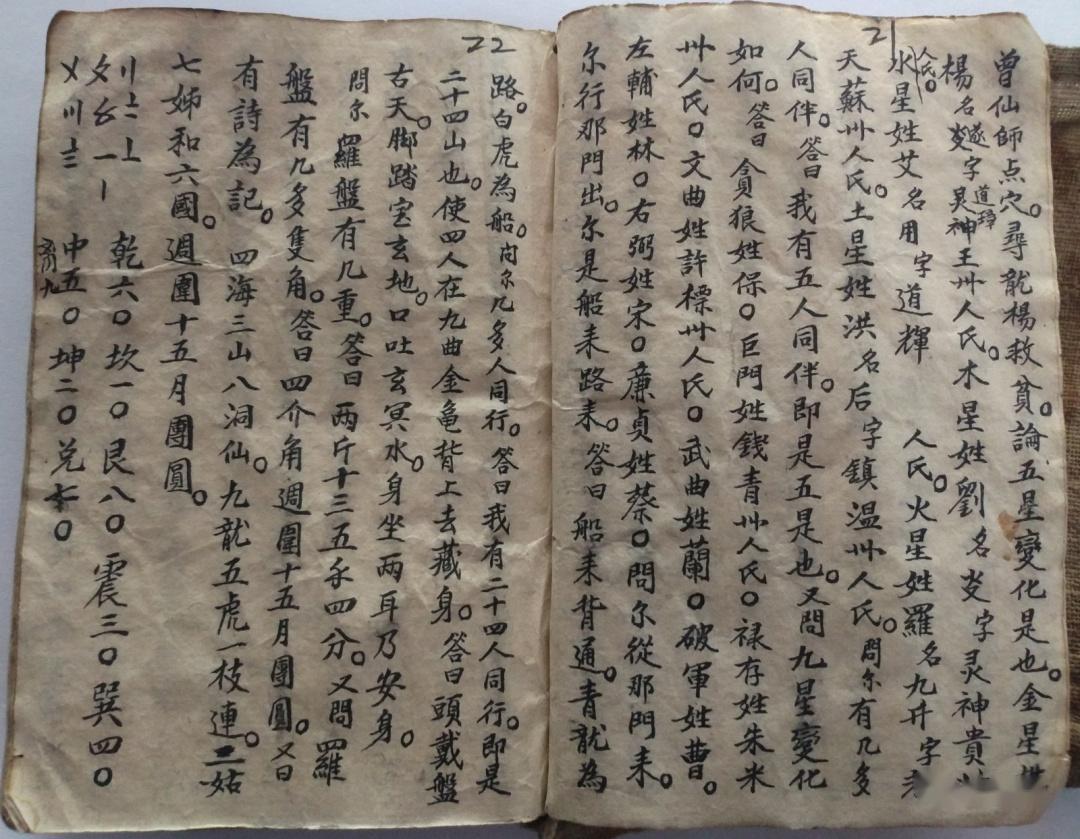 21
曾仙師点穴。尋龍楊救貧。論五星變化是也。金星姓
楊名㚇遂字道璋灵神王州人氏。木星姓劉名㚇字灵神貴州
人氏。水星姓艾名用字道輝 人氏。火星姓羅名九升字
天蘇州人氏。土星姓洪名后字鎮温州人氏。問尔有几多
人同伴。答曰我有五人同伴。即是五是也。又問九星變化
如何。答曰 貪狼姓保〇巨門姓錢青州人氏〇禄存姓朱米
州人氏〇文曲姓許標州人氏〇武曲姓蘭〇破軍姓曹。
左輔姓林〇右弼姓宋〇廉貞姓蔡〇問尔從那門来。
尔行那門出。尔是船来路来。答曰船来背通。青龍為
22
路。白虎為船。問尔几多人同行。答曰我有二十四人同行。即是
二十四山也。使四人在九曲金龜背上去藏身。答曰頭戴盤
古天。脚踏宝玄地。口吐玄冥水。身坐两耳乃安身。
問尔 羅盤有几重。答曰两斤十三五千四分。又問 羅
盤有几多隻角。答曰四介角週圍十五月團圓。又曰
有詩為記。 四海三山八洞仙。九龍五虎一枝連。二姑
七姊和六國。週圍十五月團圓。
〢〨〧
乂〥一〡 乾六〇坎一〇艮八〇震三〇巽四〇
〤〣〨 中五〇坤二〇兑七〇
离九